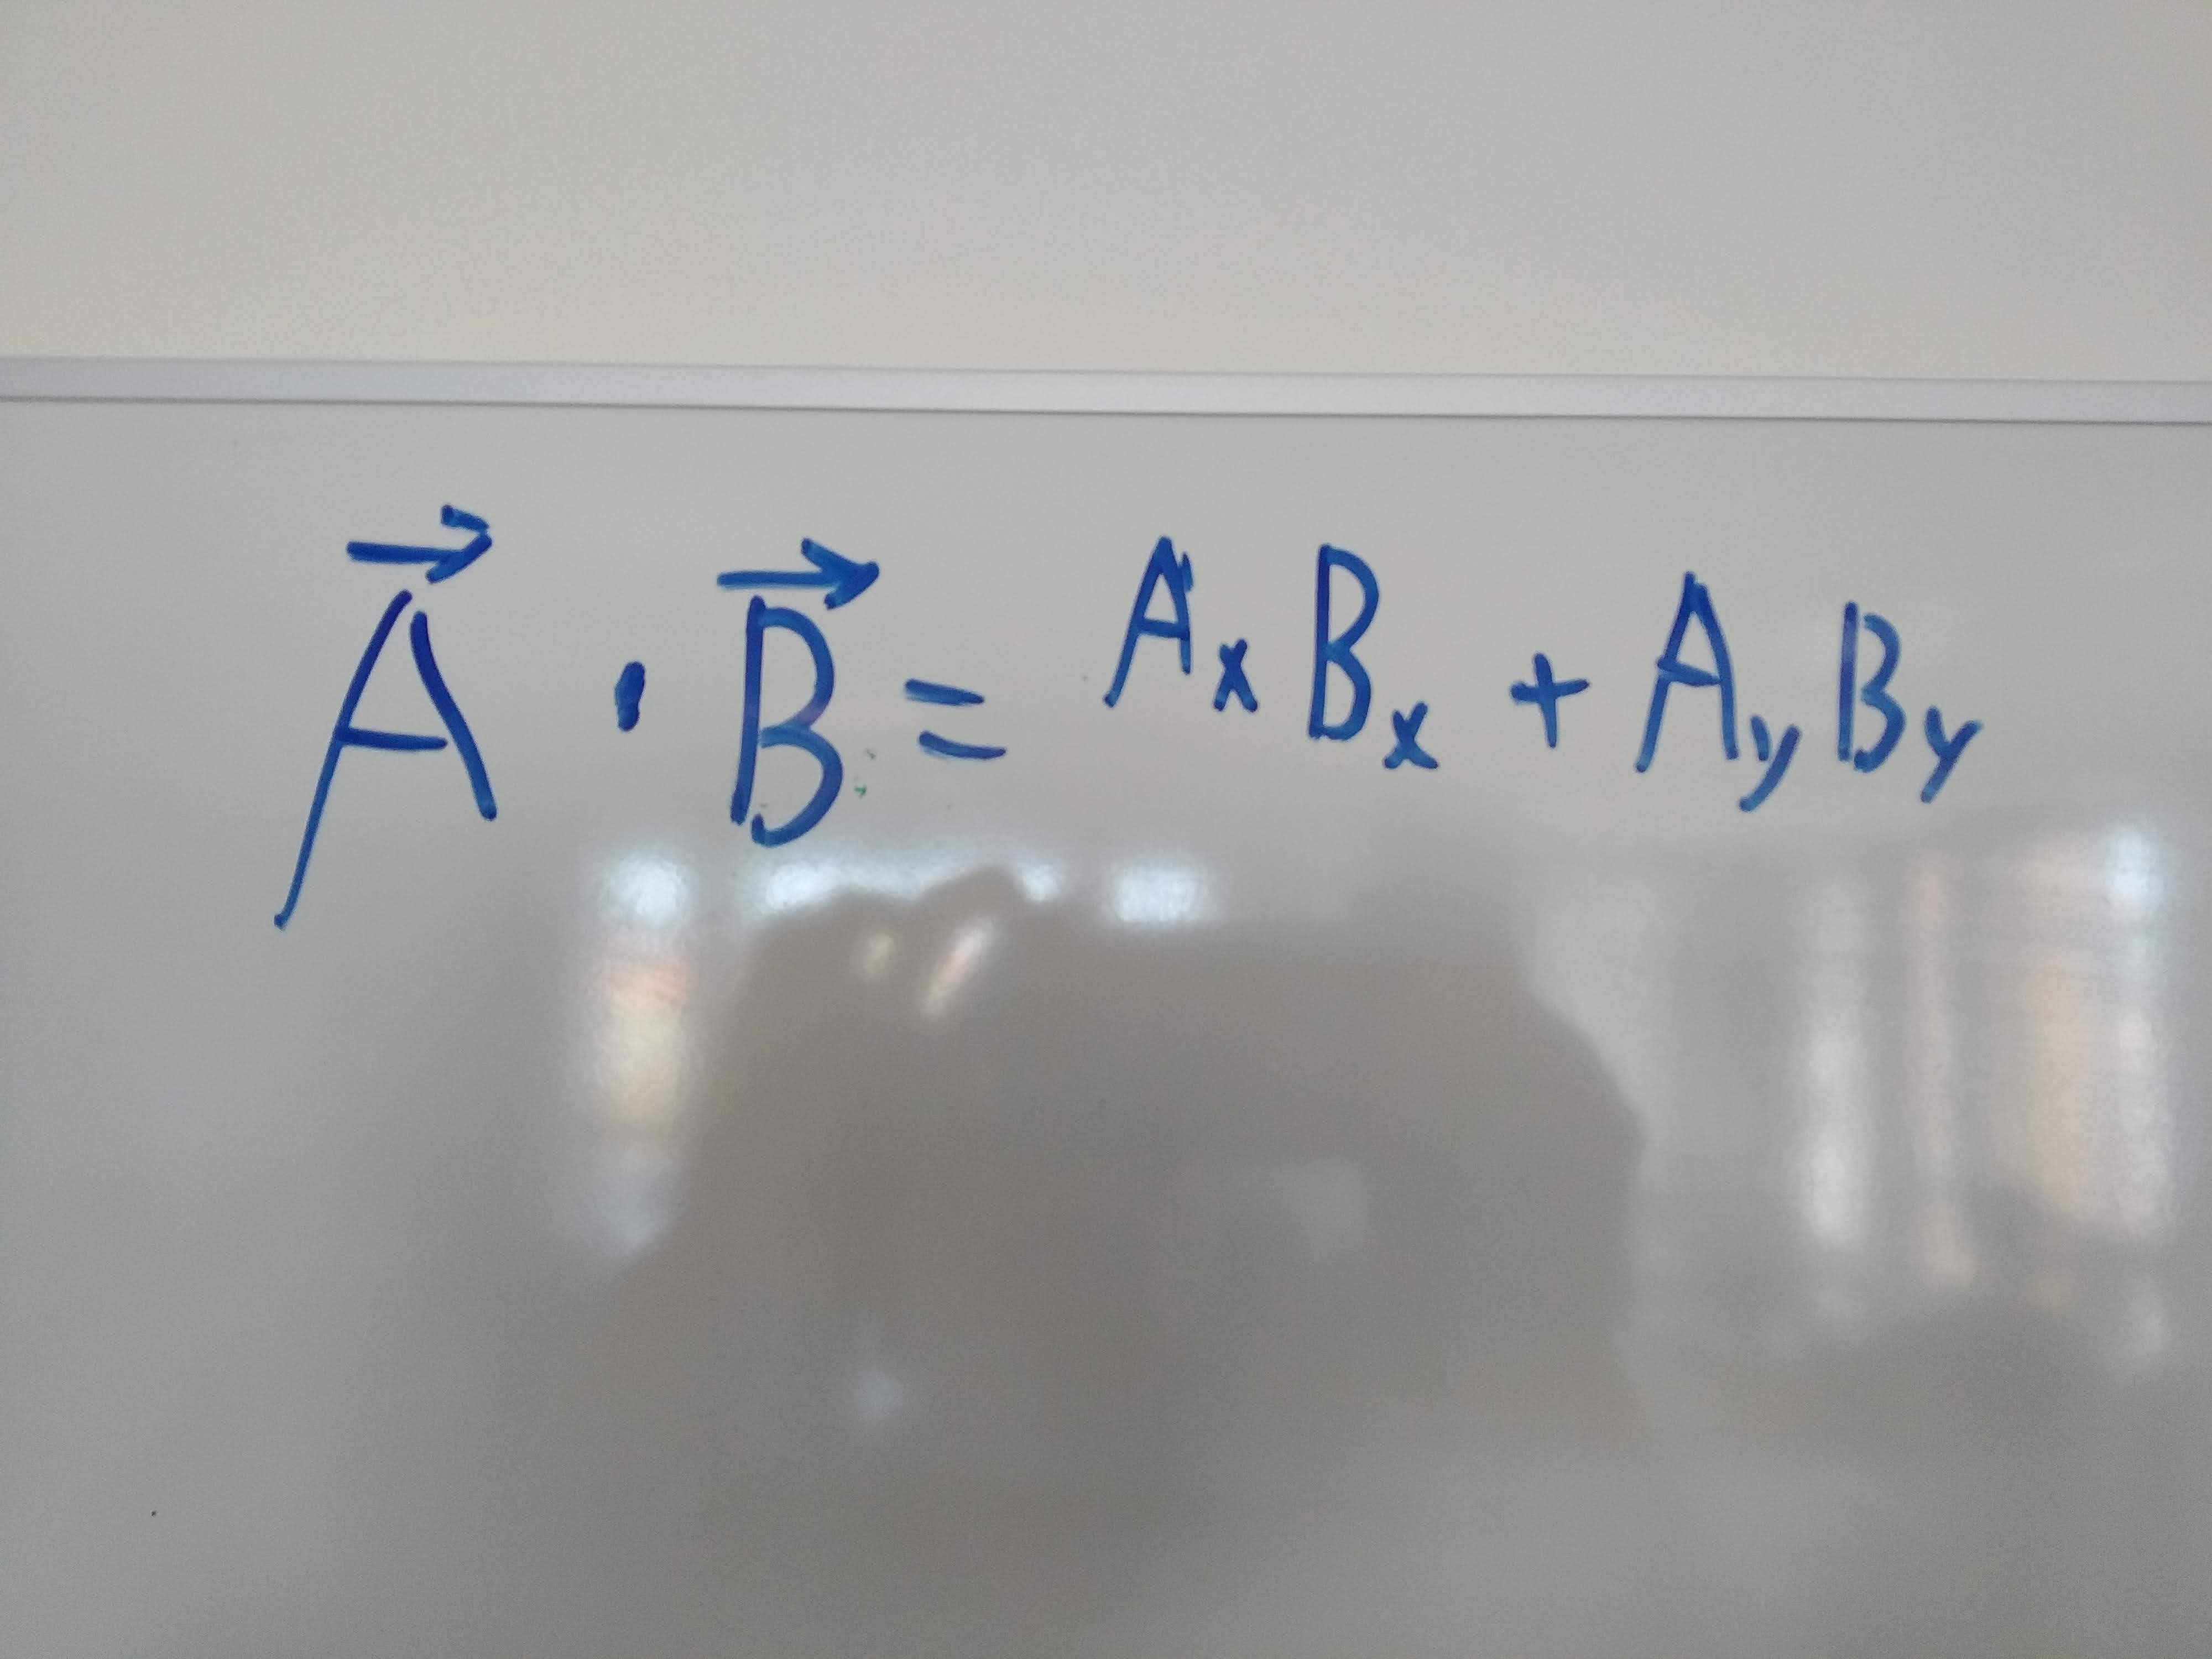 $\vec{A} \cdot \vec{B} = A_x B_x + A_y B_y$